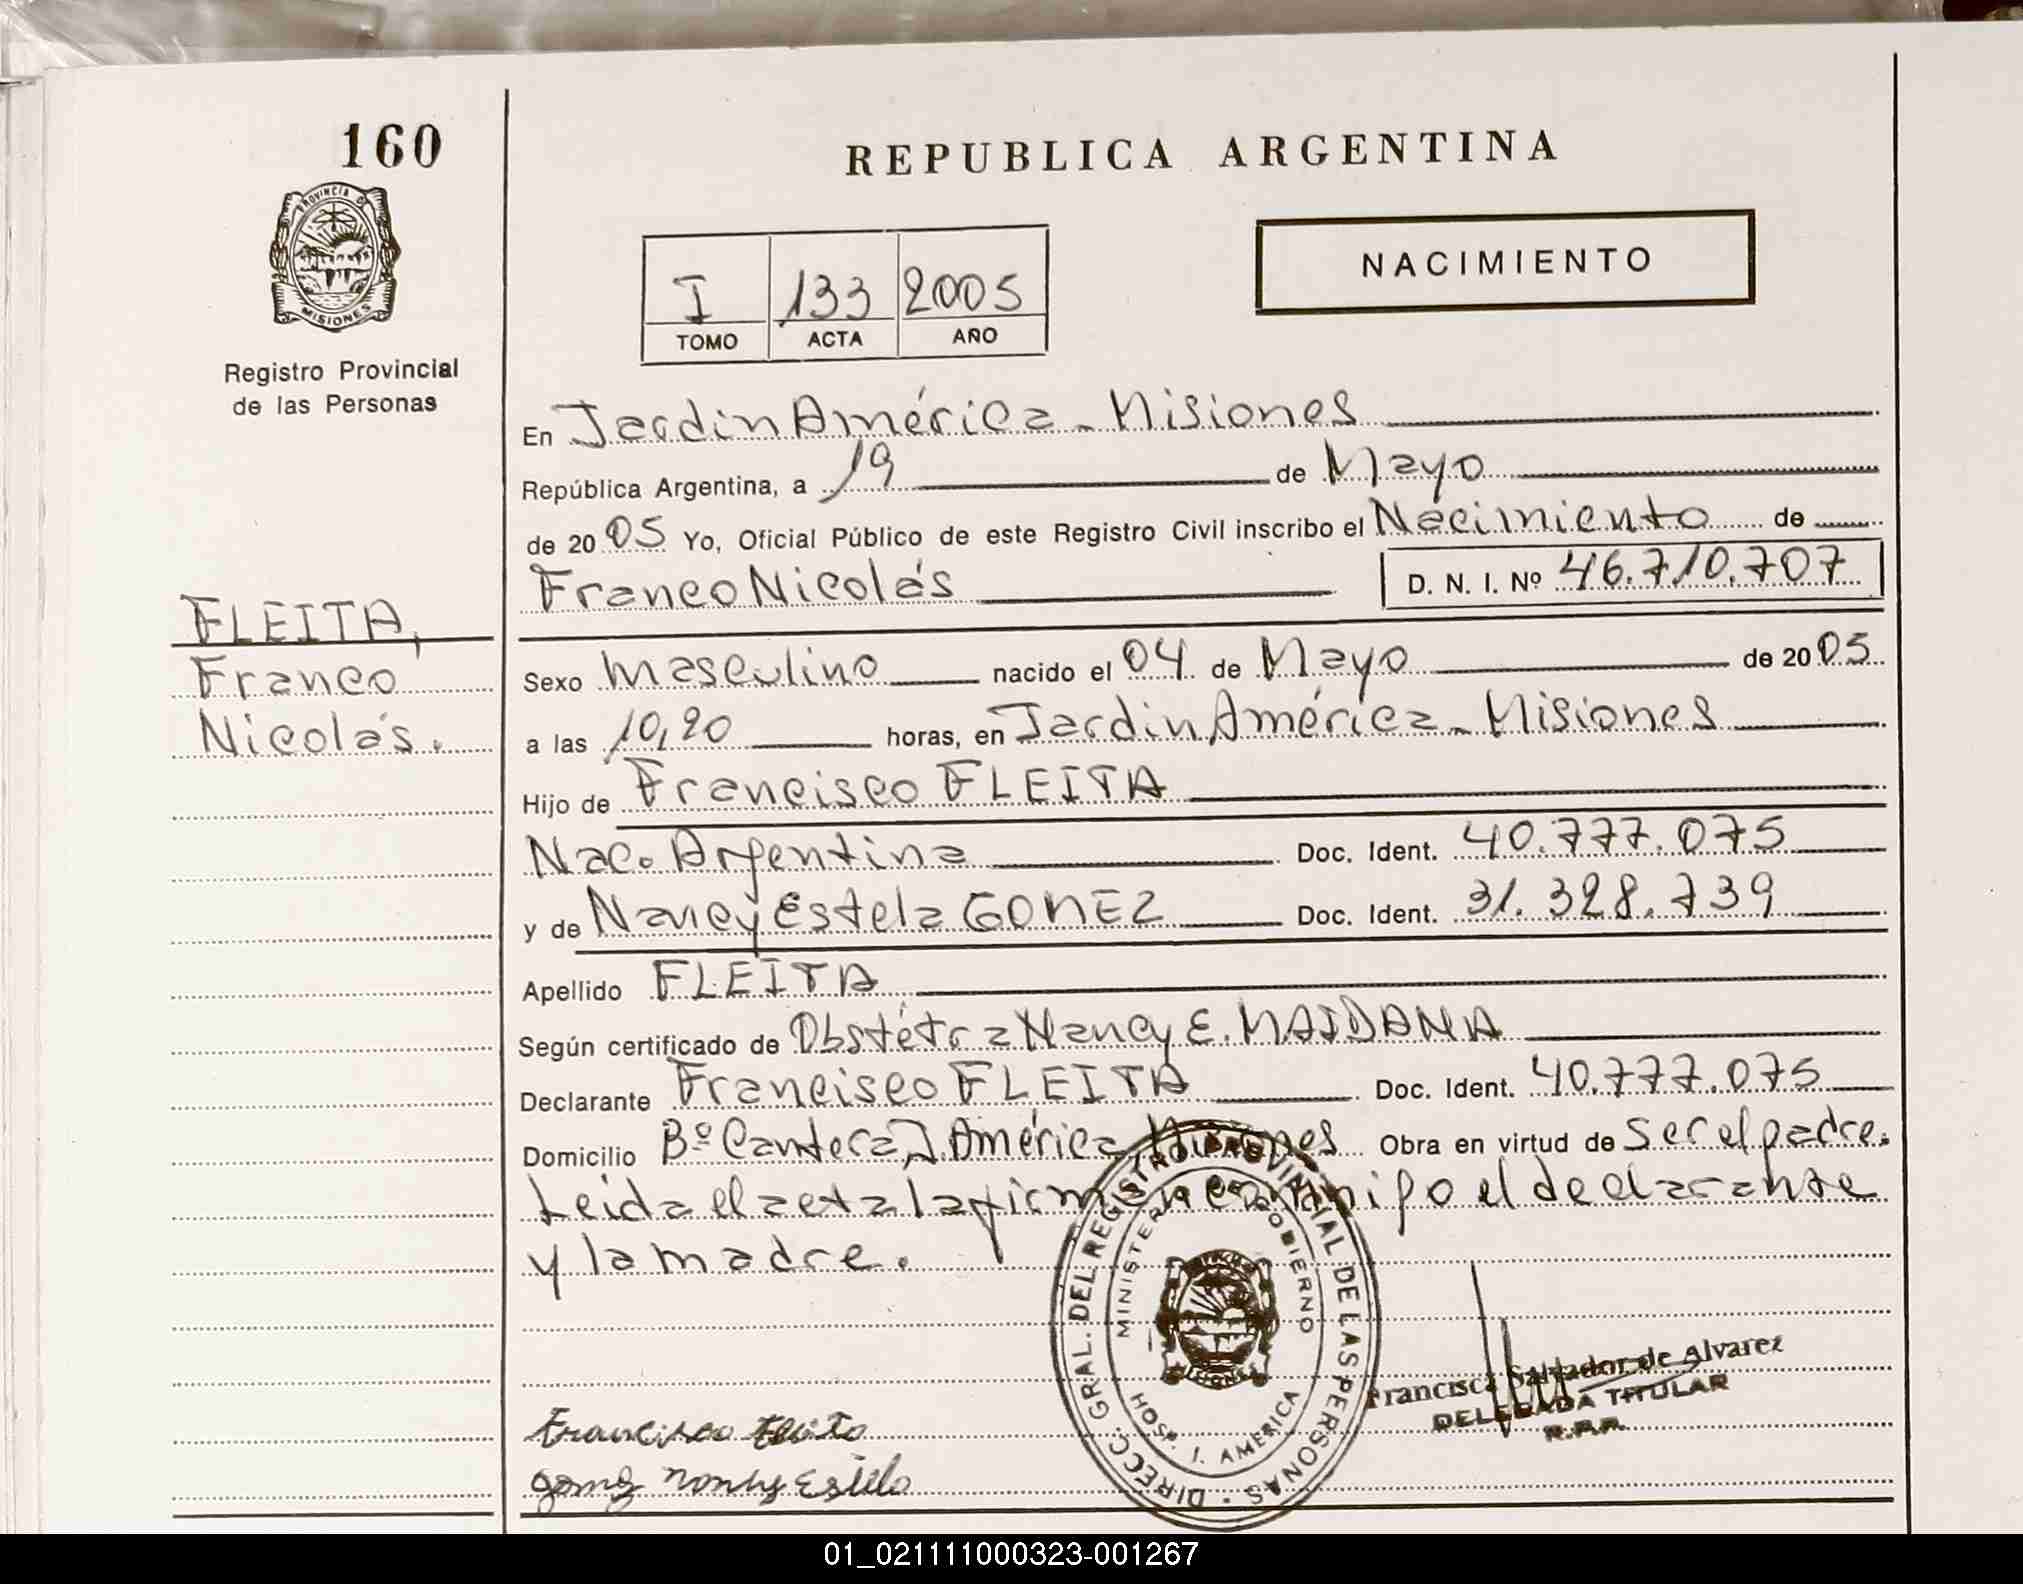 160
PROVINCIA DE
MISIONES
Registro Provincial
de las Personas
REPUBLICA ARGENTINA
I 133 2005
TOMO ACTA AÑO
NACIMIENTO
En Jardin América - Misiones
República Argentina, a 19 de Mayo
de 2005 Yo, Oficial Público de este Registro Civil inscribo el Nacimiento de
Franco Nicolás D. N. I. Nº 46.710.707
FLEITA,
Franco
Nicolás.
Sexo Masculino nacido el 04 de Mayo de 2005
a las 10,20 horas, en Jardin América - Misiones
Hijo de Francisco FLEITA
Nac. Argentina Doc. Ident. 40.777.075
y de Nancy Estela GOMEZ Doc. Ident. 31.328.739
Apellido FLEITA
Según certificado de Obstétra Nancy E. MAIDANA
Declarante Francisco FLEITA Doc. Ident. 40.777.075
Domicilio Bº Cantera, J. América Misiones Obra en virtud de ser el padre.
Leida el acta la firman conmigo el declarante
y la madre.
DIRECC. GRAL. DEL REGISTRO PROVINCIAL DE LAS PERSONAS
MINISTERIO DE GOBIERNO
HOSP. J. AMERICA
Francisca Salvador de Alvarez
DELEGADA TITULAR
R.P.P.
Francisco Fleita
Gomez Nancy Estela
01_021111000323-001267